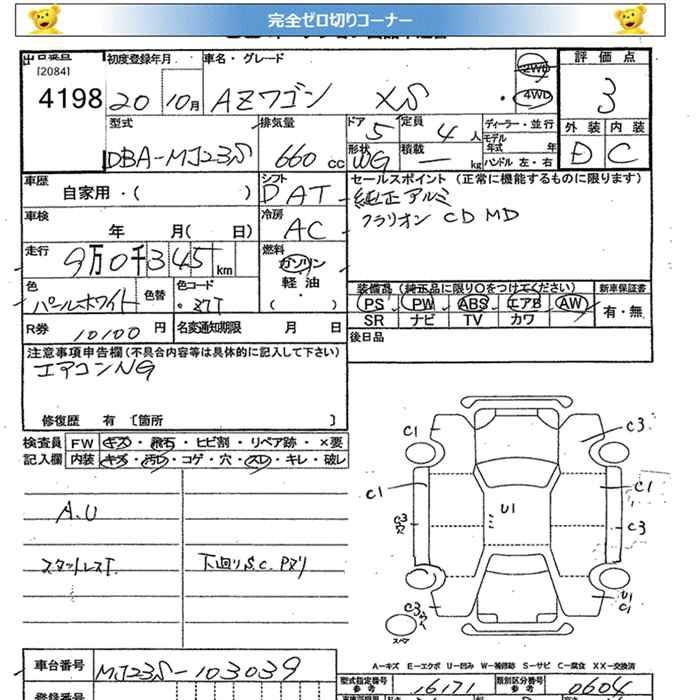 完全ゼロ切りコーナー
[2084]
4198
初度登録年月
20 10月
車名・グレード
AZワゴン XS
2WD
・4WD
評価点
3
外装 内装
D C
型式
DBA-MJ23S
排気量
660 cc
ドア
5
定員
4 人
形状
WG
積載
― kg
ディーラー・並行
モデル年式 年
ハンドル 左・右
車歴
自家用・( )
シフト
DAT
セールスポイント (正常に機能するものに限ります)
純正アルミ
フラリオン CD MD
車検
年 月( 日)
冷房
AC
走行
9万0千345 km
燃料
ガソリン
軽油
( ・ )
色
パールホワイト
色替
色コード
・Z7T
装備品 (純正品に限り○をつけてください)
PS PW ABS エアB AW
SR ナビ TV カワ
新車保証書
有・無
R券
10100 円
名変通知期限 月 日
後日品
注意事項申告欄(不具合内容等は具体的に記入して下さい)
エアコンNG
修復歴 有 〔箇所 〕
検査員 FW キズ・飛石・ヒビ割・リペア跡・×要
記入欄 内装 キズ・汚レ・コゲ・穴・スレ・キレ・破レ
A.U
スタットレスT.
下廻りS.C.Pヌリ
C1
C3
C1
C1
U1
C3
穴
C3
C3
U1
C1
スペア
A―キズ E―エクボ U―凹み W―補修跡 S―サビ C―腐食 XX―交換済
車台番号
MJ23S-103039
型式指定番号
参考
16171
類別区分番号
参考
0604
登録番号